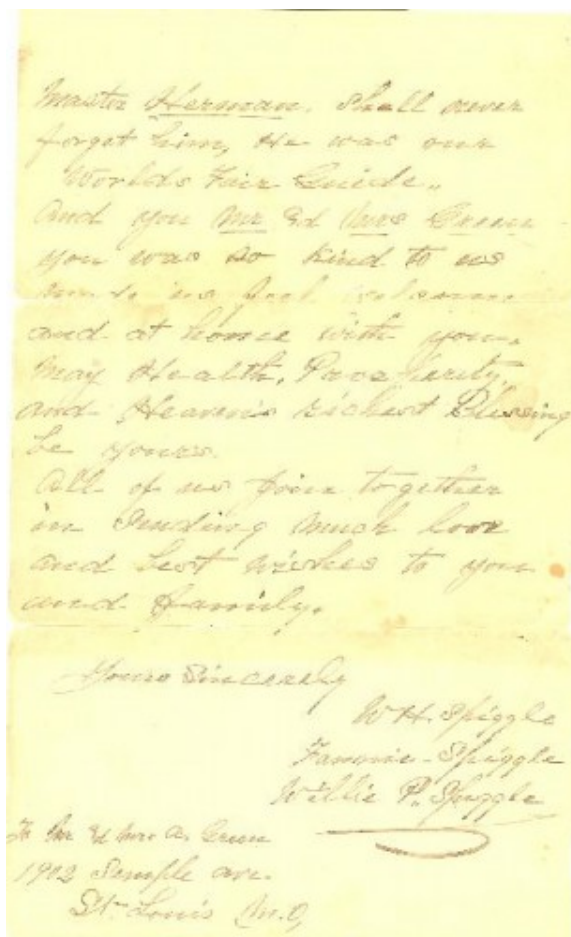 Master Herman. Shall never
forget him, He was our
Worlds Fair Guide.
And you Mr & Mrs Green
you was so kind to us
made us feel welcome
and at home with you.
May Health, Prosperity,
and Heaven's richest Blessing
be yours.
All of us join together
in sending much love
and best wishes to you
and family.
Yours Sincerely
W H. Spiggle
Fannie Spiggle
Willie P. Spiggle
To Mr & Mrs A. Green
1902 Semple ave.
St Louis M.O,